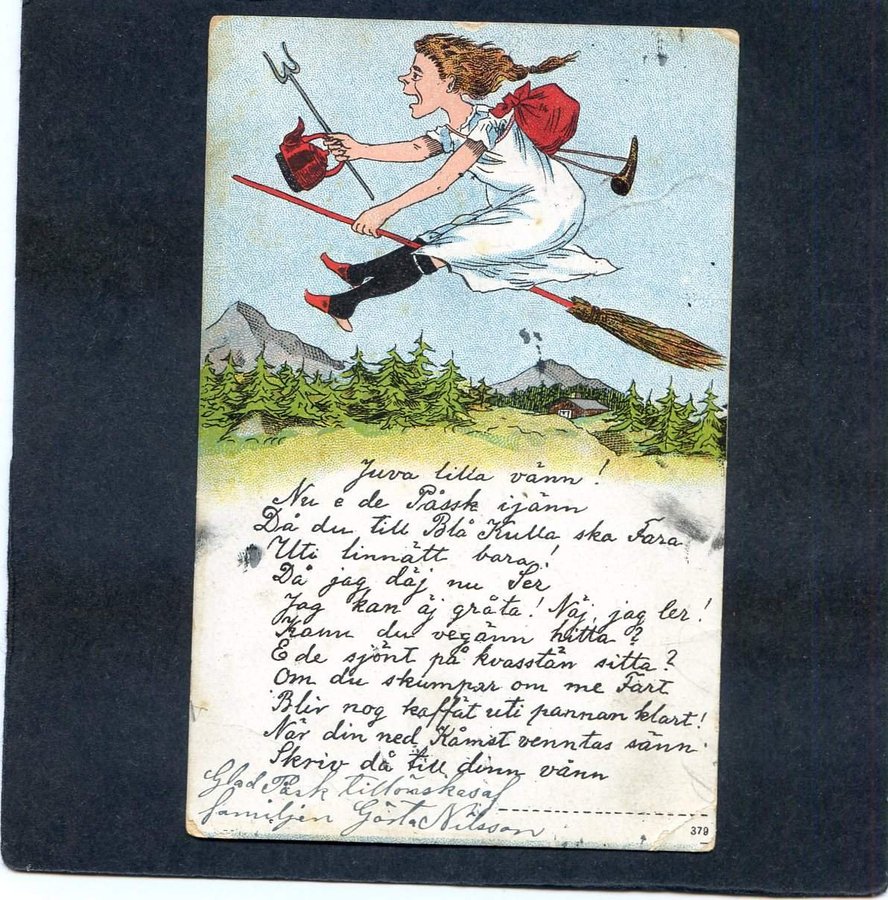 Juva lilla vänn!
Nu e de Påssk ijänn
Då du till Blå Kulla ska Fara
Uti linnätt bara!
Då jag däj nu Ser
Jag kan äj gråta! Näj, jag ler!
Kann du vegänn hitta?
E de sjönt på kvasstän sitta?
Om du skumpar om me Fart
Bliv nog kaffät uti pannan klart!
När din ned Kåmst venntas sänn
Skriv då till dinn vänn
Glad Påsk tillönskas af
familjen Gösta Nilsson
379